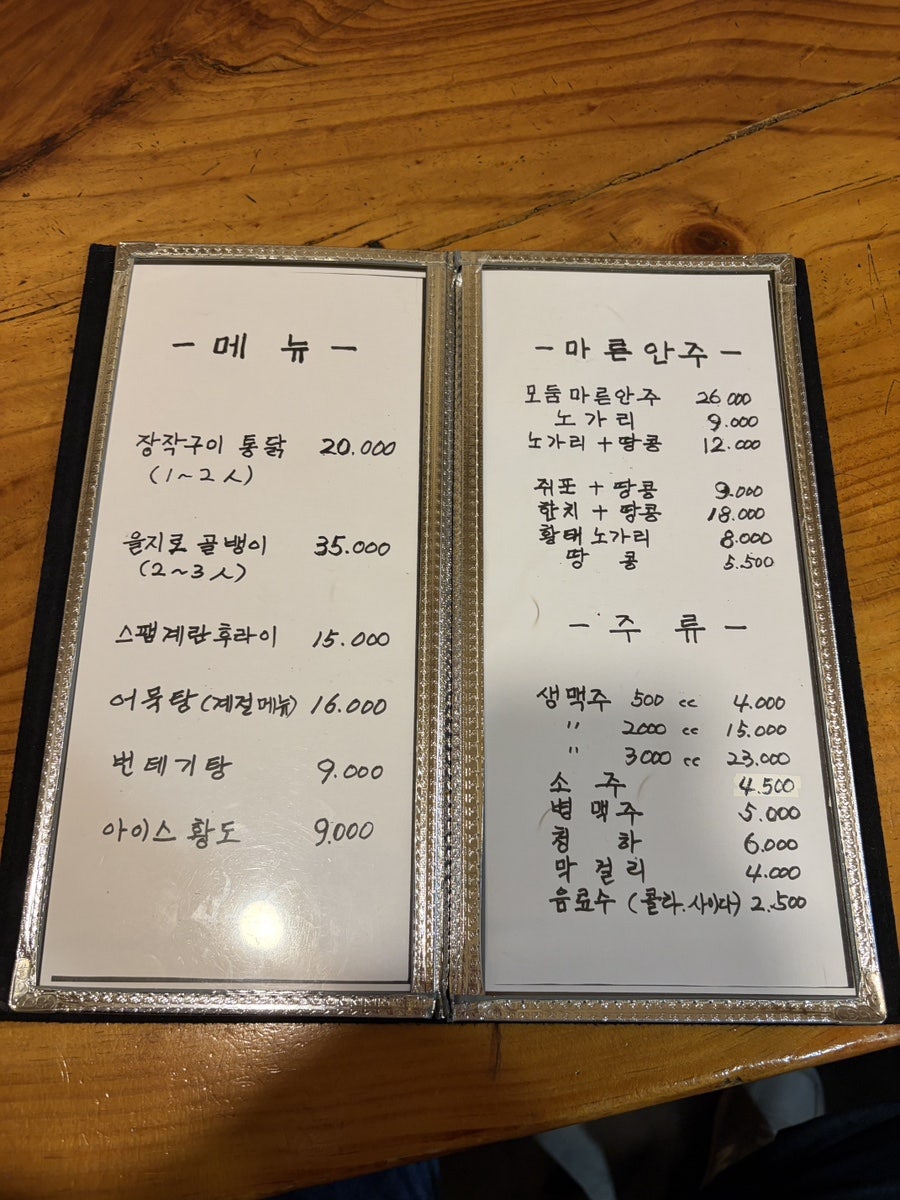 - 메 뉴 -
장작구이 통닭 20.000
(1~2人)
을지로 골뱅이 35.000
(2~3人)
스팸계란후라이 15.000
어묵탕(계절메뉴) 16.000
번테기탕 9.000
아이스 황도 9.000
- 마른안주 -
모듬마른안주 26 000
노가리 9.000
노가리 + 땅콩 12.000
쥐포 + 땅콩 9.000
한치 + 땅콩 18.000
황태 노가리 8.000
땅 콩 5.500
- 주 류 -
생맥주 500 cc 4.000
〃 2000 cc 15.000
〃 3000 cc 23.000
소 주 4.500
병 맥주 5.000
청 하 6.000
막 걸 리 4.000
음료수 (콜라.사이다) 2.500